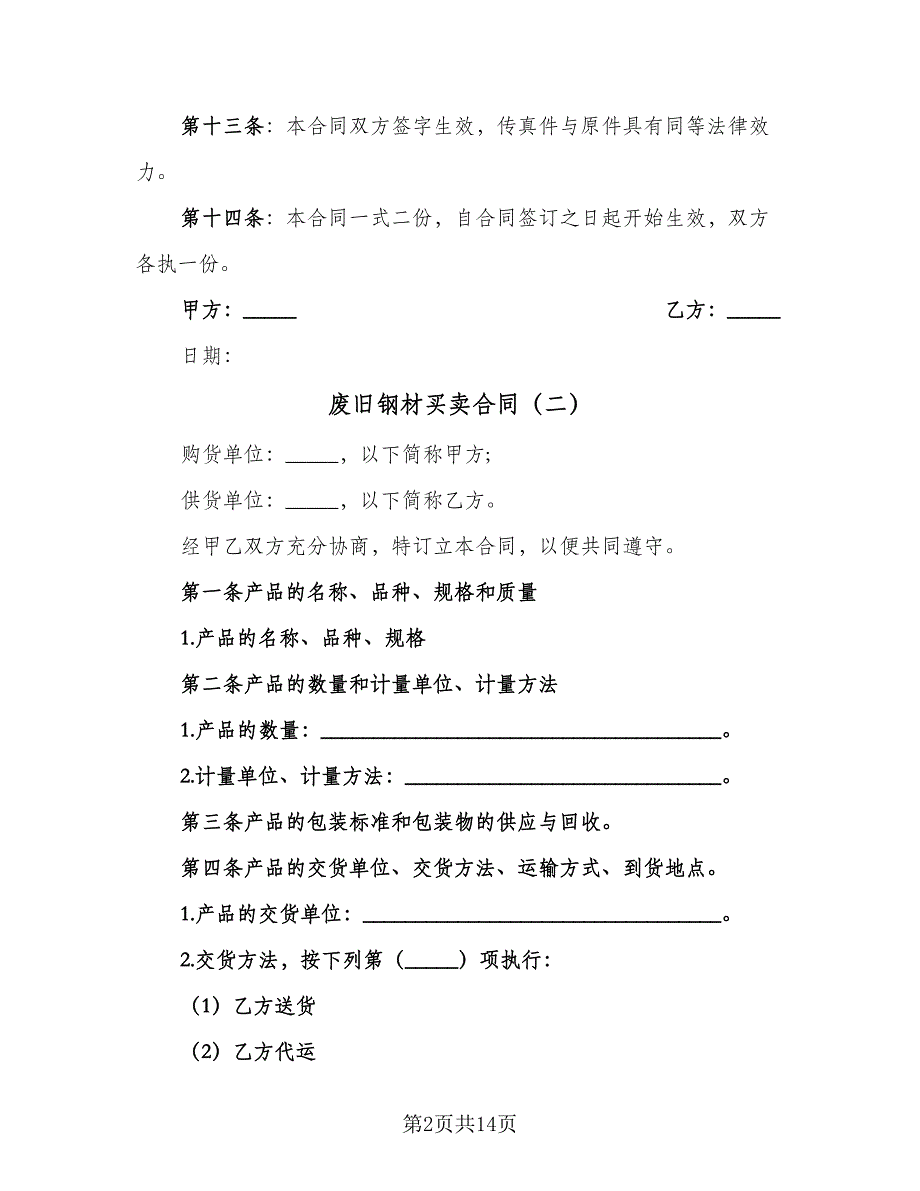 第十三条：本合同双方签字生效，传真件与原件具有同等法律效
力。
第十四条：本合同一式二份，自合同签订之日起开始生效，双方
各执一份。
甲方：_____ 乙方：_____
日期：
废旧钢材买卖合同（二）
购货单位：_____，以下简称甲方;
供货单位：_____，以下简称乙方。
经甲乙双方充分协商，特订立本合同，以便共同遵守。
第一条产品的名称、品种、规格和质量
1.产品的名称、品种、规格
第二条产品的数量和计量单位、计量方法
1.产品的数量：______________________________________。
2.计量单位、计量方法：______________________________。
第三条产品的包装标准和包装物的供应与回收。
第四条产品的交货单位、交货方法、运输方式、到货地点。
1.产品的交货单位：__________________________________。
2.交货方法，按下列第（_____）项执行：
（1）乙方送货
（2）乙方代运
第2页共14页